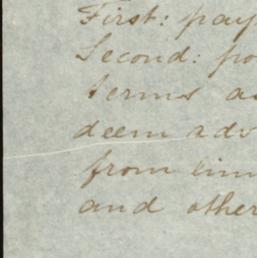 First: pay
Second: po
terms a
deem adv
from
and other